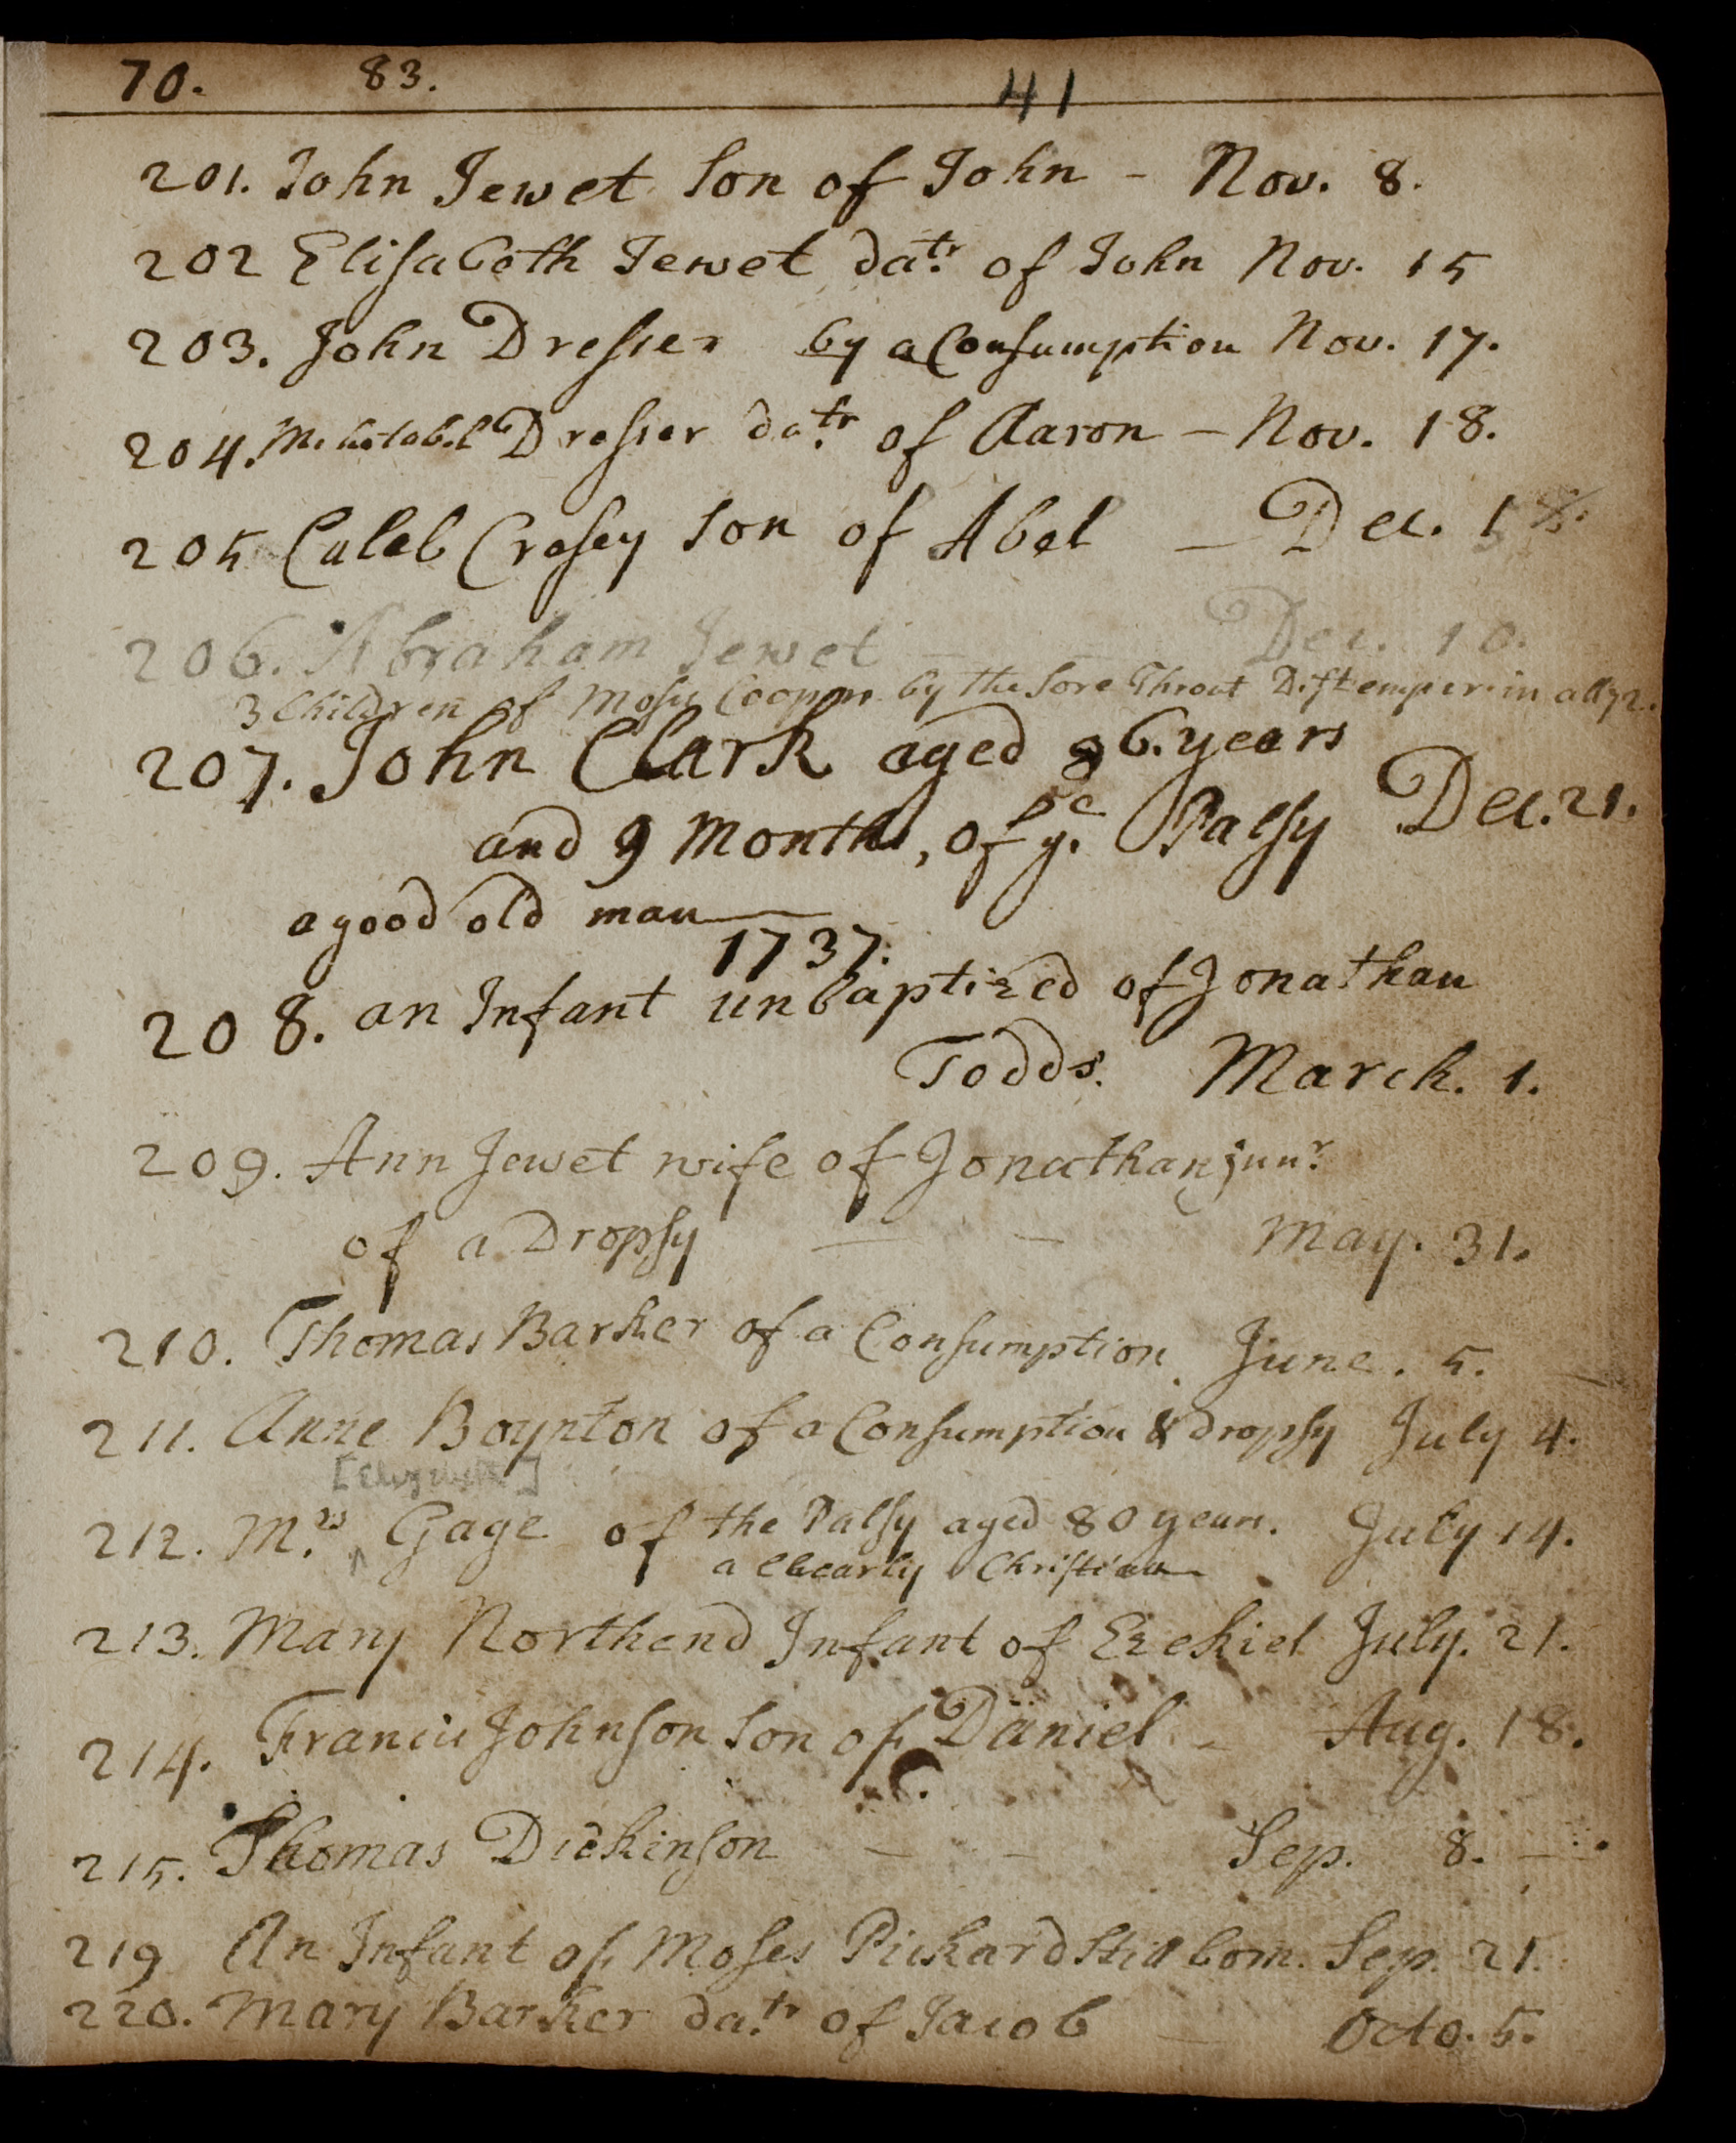 70. 83. 41
201. John Jewet Son of John - Nov. 8.
202 Elisabeth Jewet datr. of John Nov. 15
203. John Dresser by a Consumption Nov. 17.
204. Mehetabel Dresser datr. of Aaron - Nov. 18.
205 Caleb Cresey Son of Abel - Dec. 18.
206. Abraham Jewet - Dec. 10.
3 Children of Moses Cooper by the Sore Throat Distemper in all 72.
207. John Clark aged 86. years
and 9 Months, of ye. Palsy Dec. 21.
a good old man
1737.
208. an Infant unbaptized of Jonathan
Todds. March. 1.
209. Ann Jewet wife of Jonathan junr.
of a Dropsy - - May. 31.
210. Thomas Barker of a Consumption June. 5.
211. Anne Boynton of a Consumption & dropsy July 4.
[Elizabeth]
212. Mrs. ^ Gage of the Palsy aged 80 years. July 14.
a Chearly Christian
213. Mary Northend Infant of Ezekiel July. 21.
214. Francis Johnson Son of Daniel - Aug. 18.
215. Thomas Dickinson - - Sep. 8. -
219 An Infant of Moses Pickard Still born. Sep. 21.
220. Mary Barker datr. of Jacob - Octo. 5.